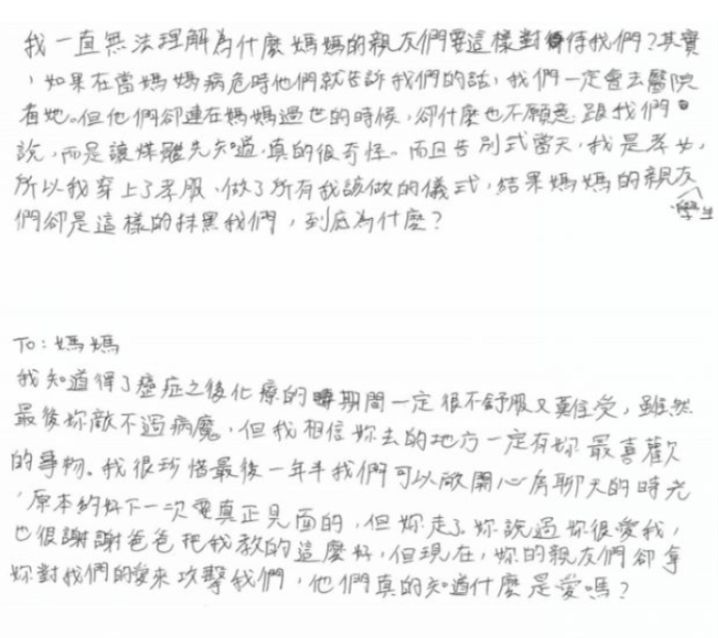 我一直無法理解為什麼媽媽的親友們要這樣對待我們?其實
,如果在當媽媽病危時他們就告訴我們的話,我們一定會去醫院
看她。但他們卻連在媽媽過世的時候,卻什麼也不願意跟我們
說,而是讓媒體先知道,真的很奇怪。而且告別式當天,我是孝女,
所以我穿上了孝服、做了所有我該做的儀式,結果媽媽的親友
學生
們卻是這樣的抹黑我們,到底為什麼?
To:媽媽
我知道得了癌症之後化療的期間一定很不舒服又難受,雖然
最後妳敵不過病魔,但我相信妳去的地方一定有妳最喜歡
的事物。我很珍惜最後一年半我們可以敞開心房聊天的時光
,原本約好下一次要真正見面的,但妳走了。妳說過妳很愛我,
也很謝謝爸爸把我教的這麼好,但現在,妳的親友們卻拿
妳對我們的愛來攻擊我們,他們真的知道什麼是愛嗎?